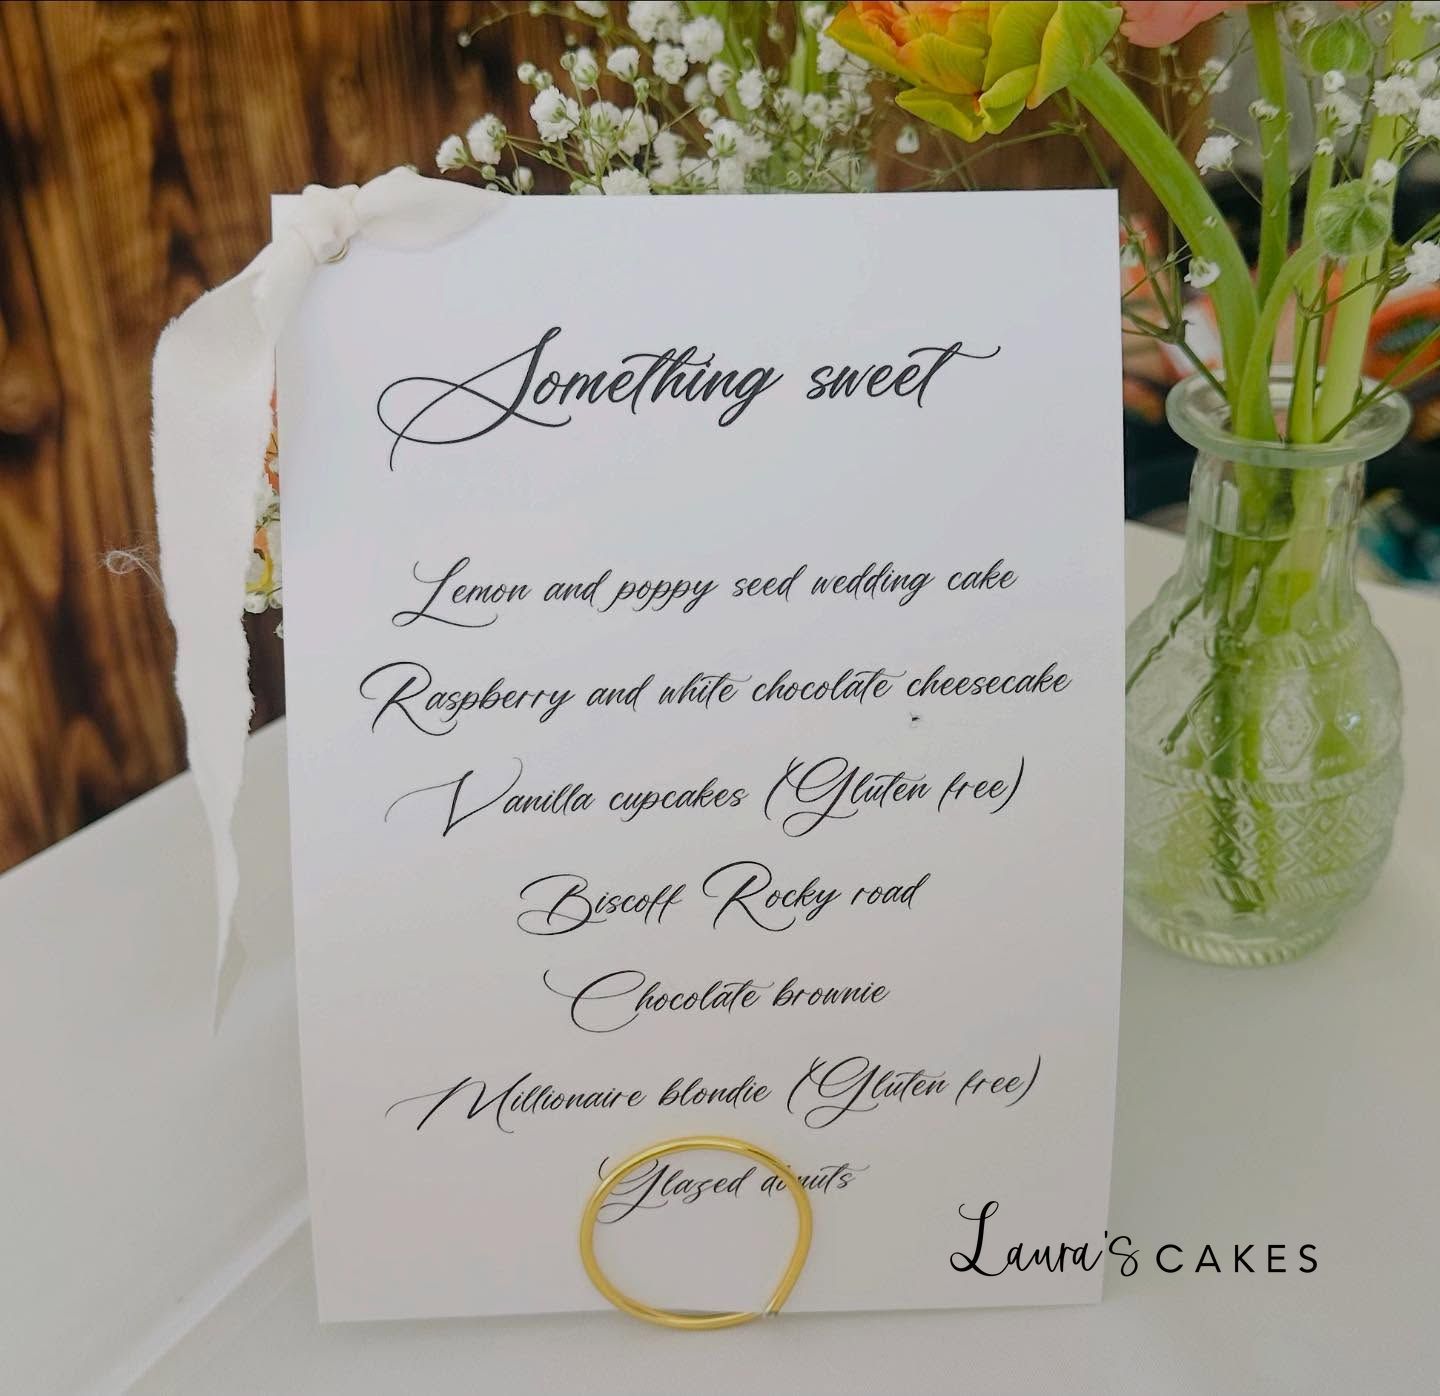 Something sweet
Lemon and poppy seed wedding cake
Raspberry and white chocolate cheesecake
Vanilla cupcakes (Gluten free)
Biscoff Rocky road
Chocolate brownie
Millionaire blondie (Gluten free)
Glazed donuts
Laura's CAKES